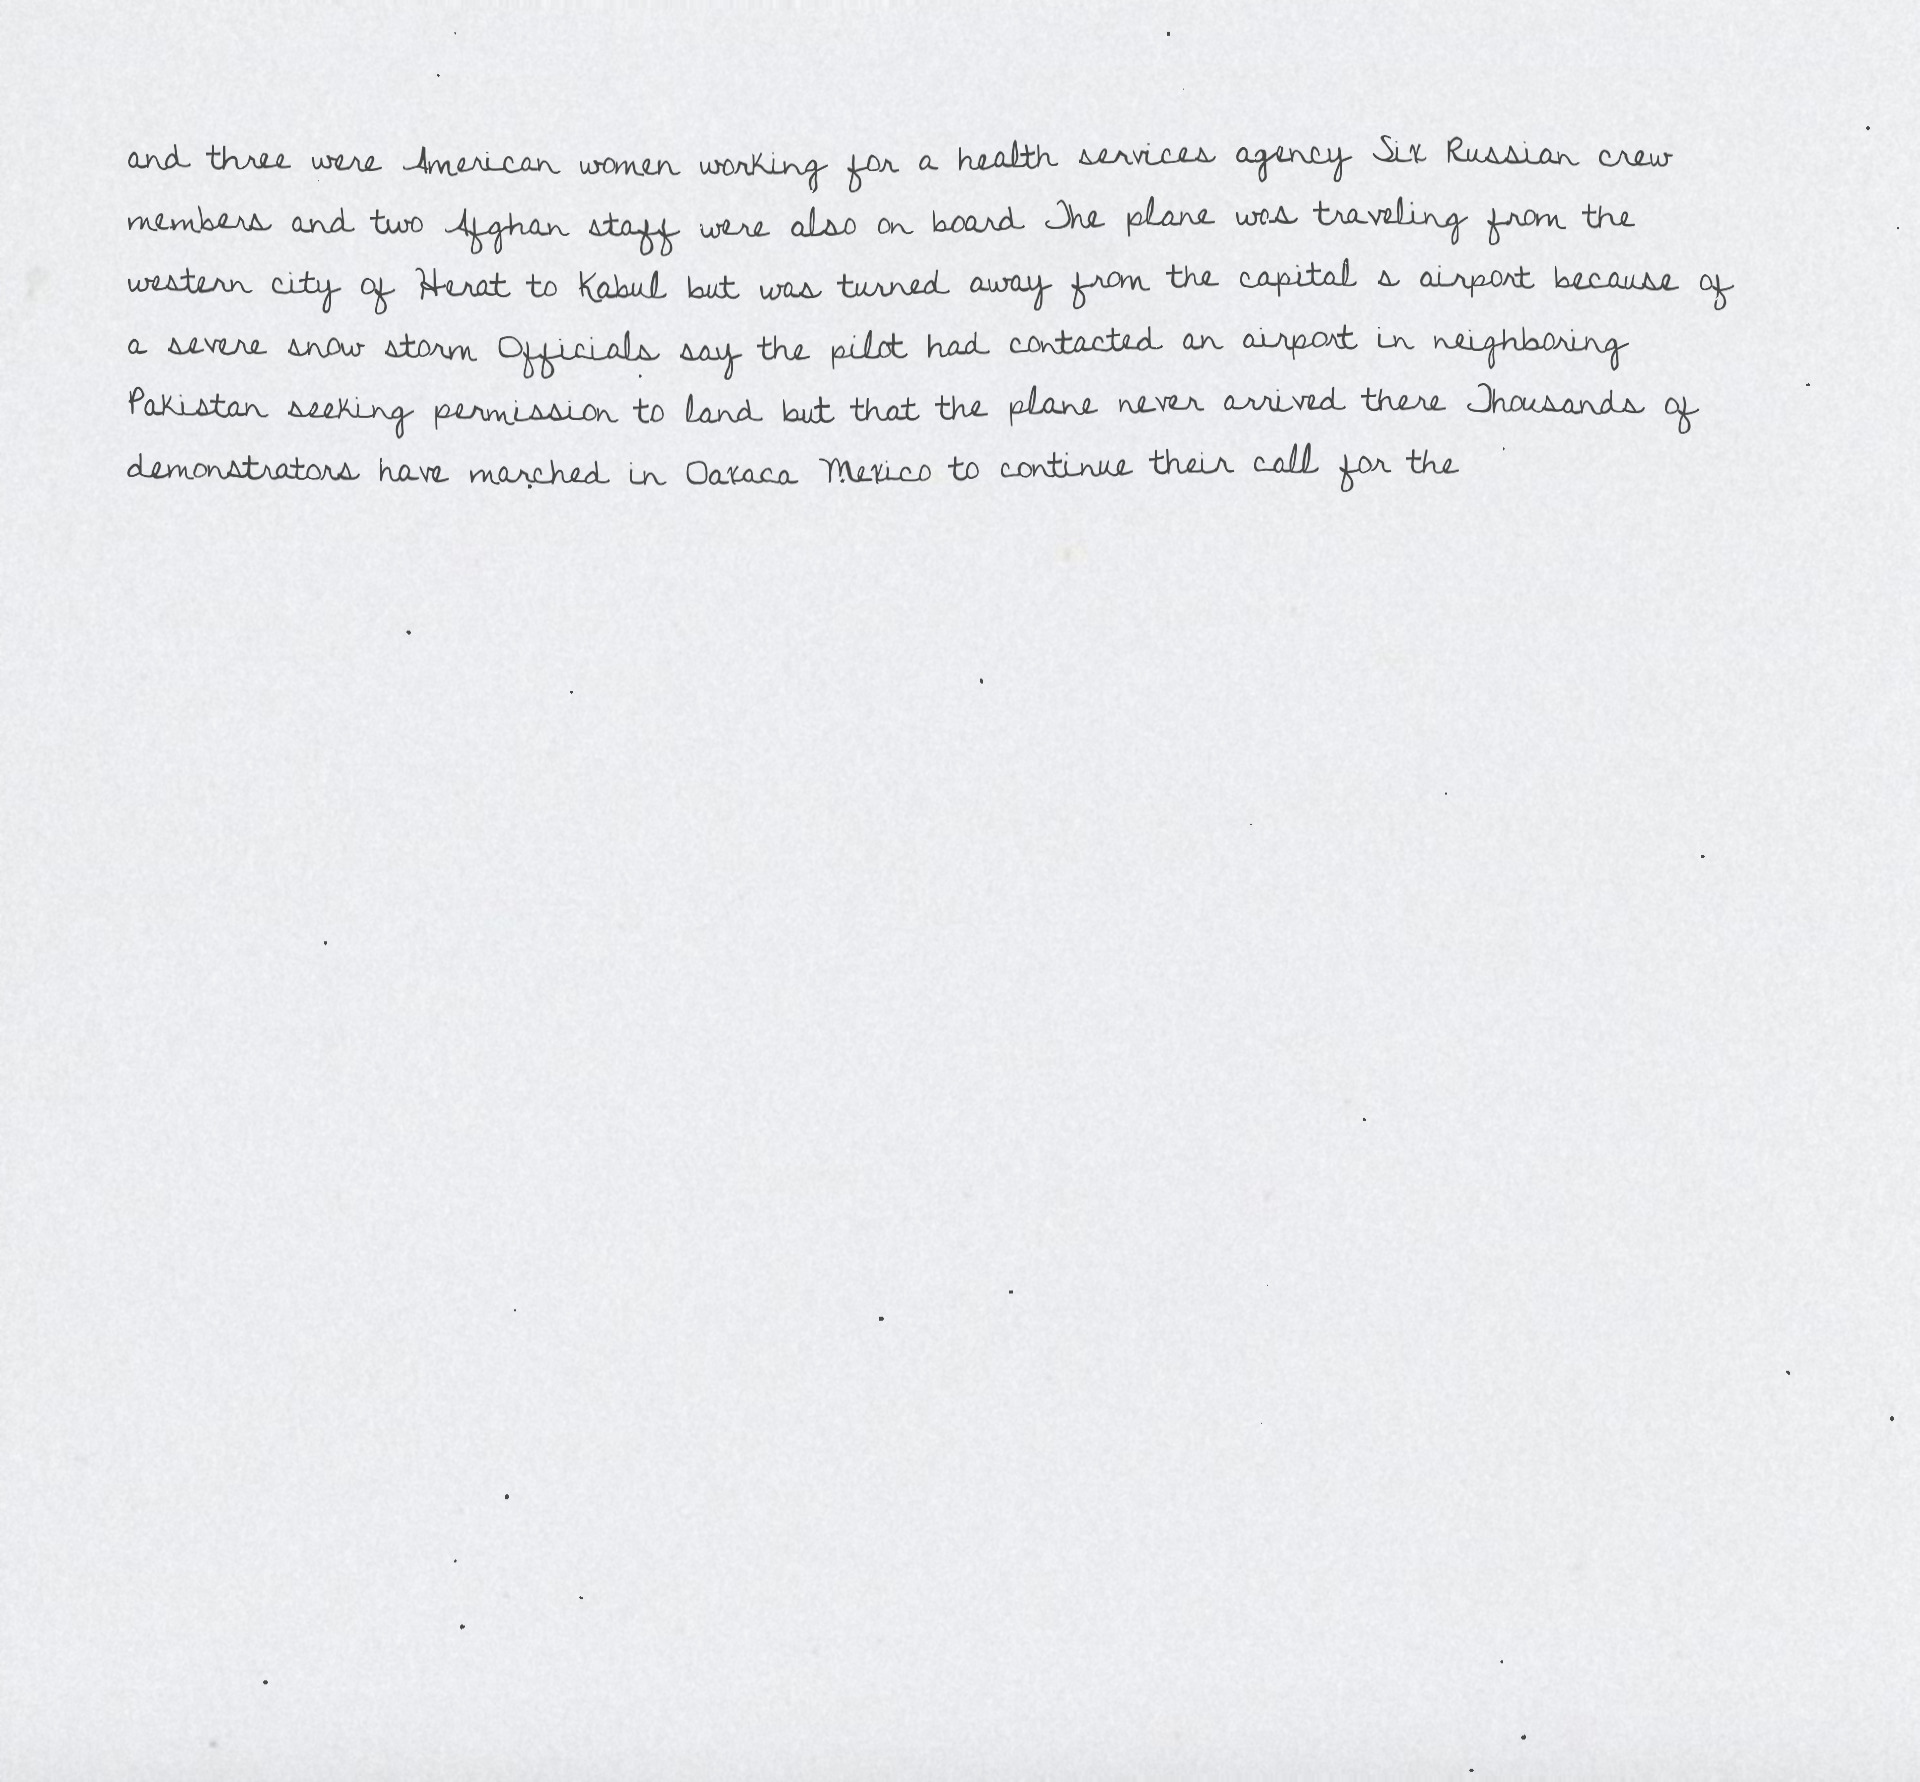 and three were American women working for a health services agency Six Russian crew
members and two Afghan staff were also on board The plane was traveling from the
western city of Herat to Kabul but was turned away from the capital s airport because of
a severe snow storm Officials say the pilot had contacted an airport in neighboring
Pakistan seeking permission to land but that the plane never arrived there Thousands of
demonstrators have marched in Oaxaca Mexico to continue their call for the